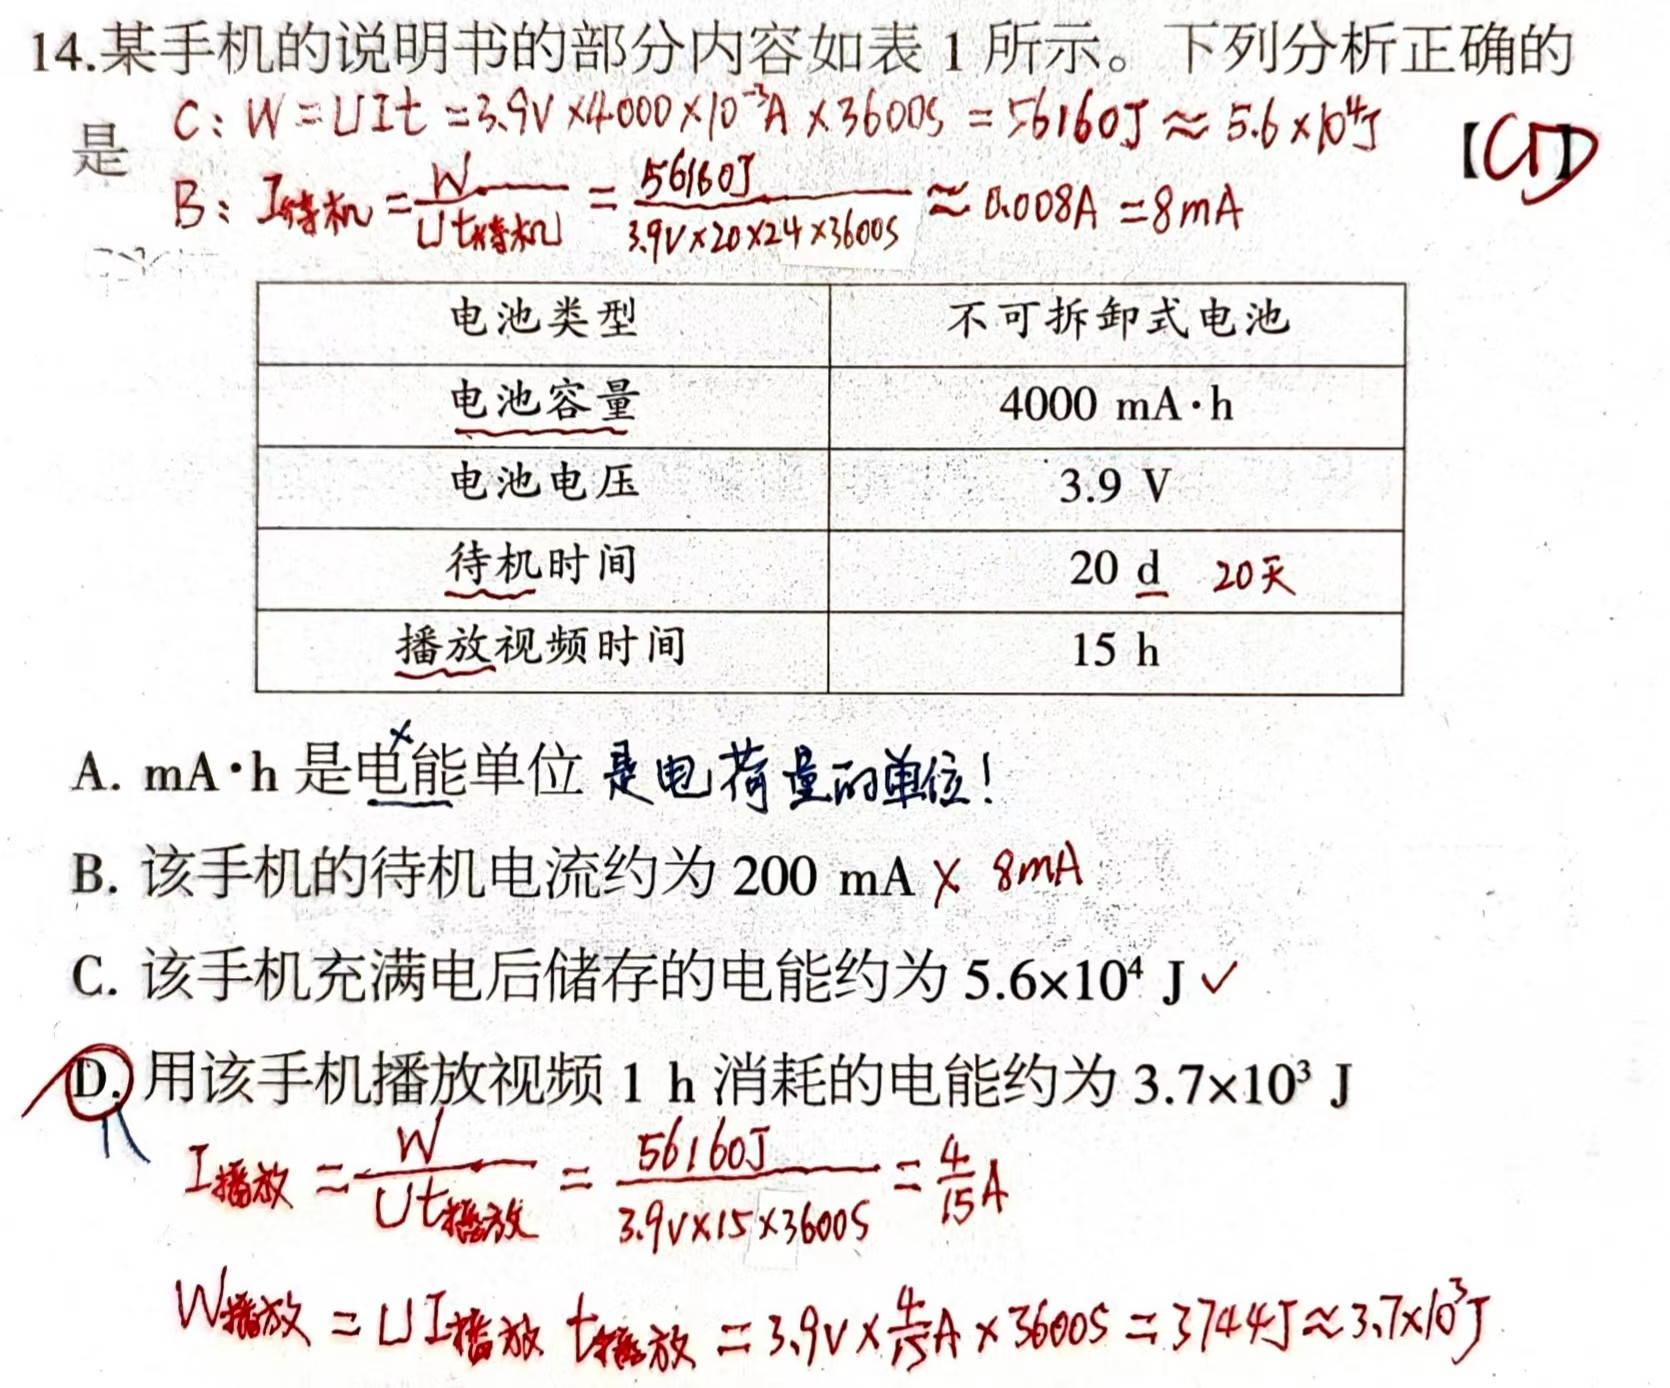 14.某手机的说明书的部分内容如表1所示。下列分析正确的
C: W=UIt=3.9V×4000×10⁻³A×3600S=56160J≈5.6×10⁴J
是 【CD】
B: I待机=W/Ut待机=56160J/3.9V×20×24×3600S≈0.008A=8mA
电池类型 不可拆卸式电池
电池容量 4000 mA·h
电池电压 3.9 V
待机时间 20 d 20天
播放视频时间 15 h
A. mA·h 是电能单位 是电荷量的单位!
B. 该手机的待机电流约为 200 mA × 8mA
C. 该手机充满电后储存的电能约为 5.6×10⁴ J ✓
D. 用该手机播放视频 1 h 消耗的电能约为 3.7×10³ J
I播放=W/Ut播放=56160J/3.9V×15×3600S=4/15A
W播放=UI播放t播放=3.9V×4/15A×3600S=3744J≈3.7×10³J